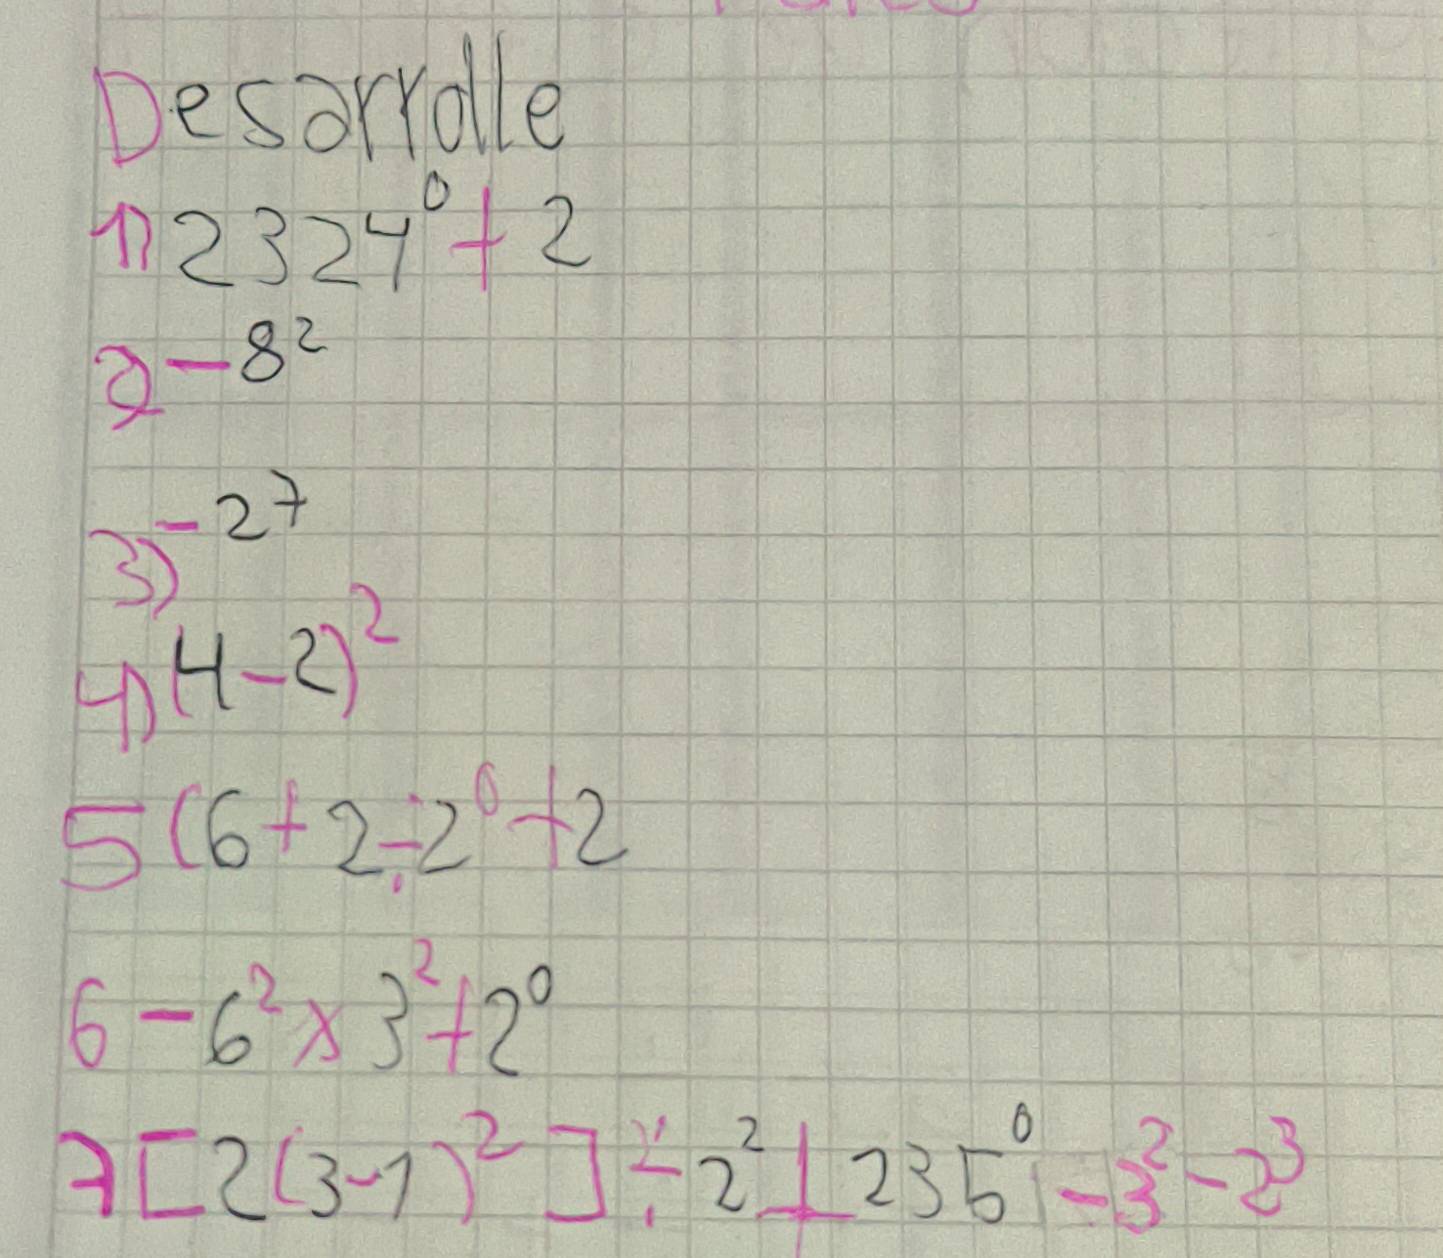 Desarrolle
1) 2324⁰ + 2
2 - 8²
3) - 2⁷
4) (4 - 2)²
5 (6 + 2 ÷ 2⁰ + 2
6 - 6² x 3² + 2⁰
7 [2(3-1)²] ÷ 2² + 235⁰ - 3² - 2³